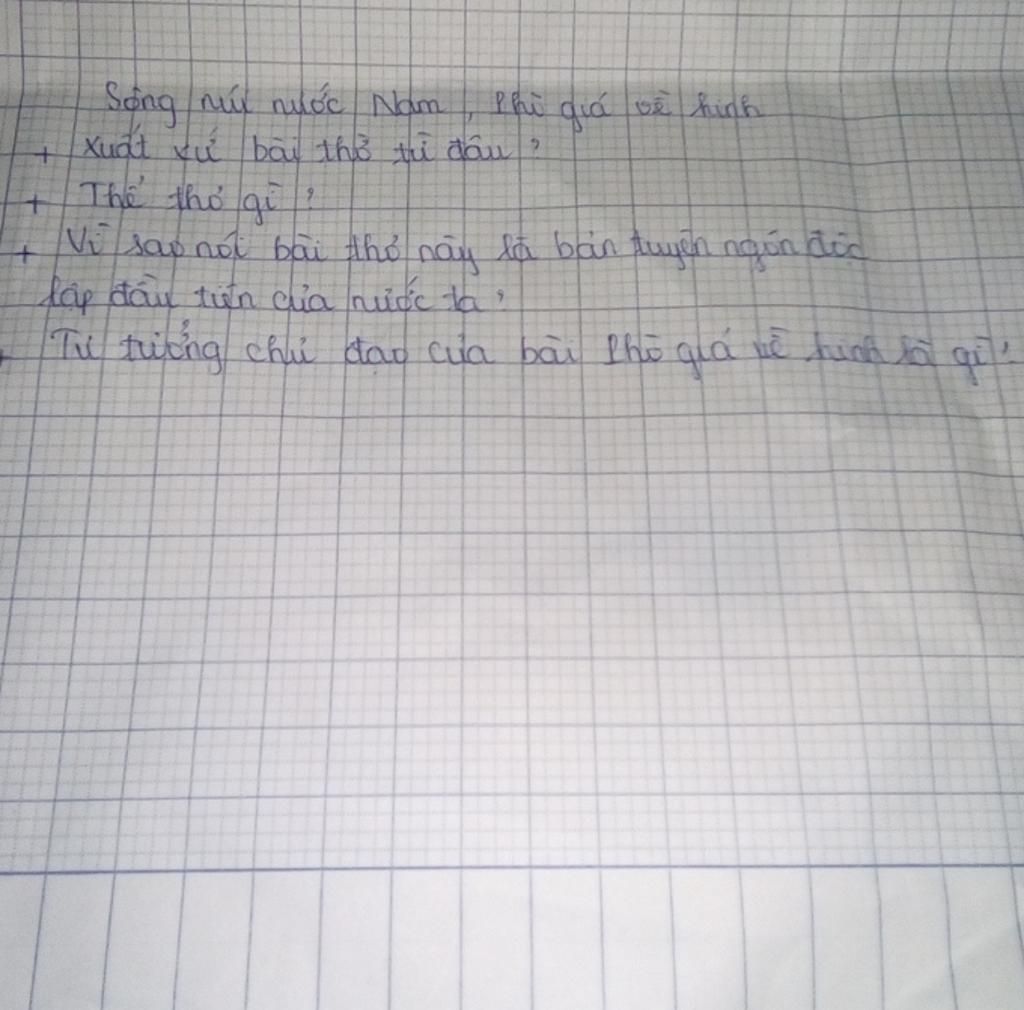 Sông núi nước Nam, Phò giá về kinh
+ Xuất xứ bài thơ từ đâu?
+ Thể thơ gì?
+ Vì sao nói bài thơ này là bản tuyên ngôn độc
lập đầu tiên của nước ta?
Tư tưởng chủ đạo của bài Phò giá về kinh là gì?